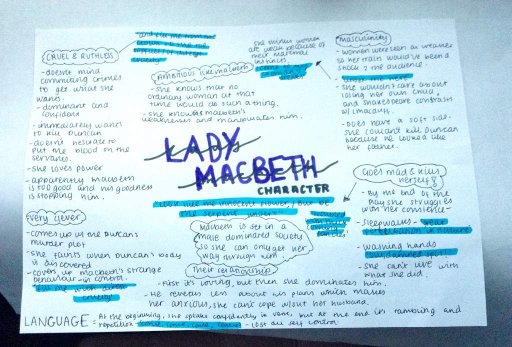 CRUEL & RUTHLESS
- doesn't mind
committing crimes
to get what she
wants.
- dominant and
confident
- immediately wants
to kill Duncan
- doesn't hesitate to
put the blood on the
servants.
- she loves power
- apparently Macbeth
is too good and his goodness
is stopping him.
Very clever
- comes up w/ the Duncan's
murder plot
- she faints when Duncan's body
is discovered
- covers up Macbeth's strange
behaviour
AMBITIOUS like Macbeth
- she knows that no
ordinary woman at that
time would do such a thing.
- she knows Macbeth's
weakness and manipulates him.
she thinks women
are weak because of
their maternal
instincs
masculinity
- women were seen as weaker
so her traits would've been a
shock to the audience
- she wouldn't care about
losing her own child,
and Shakespeare contrasts
w/ Macduff.
- does have a soft side
she couldn't kill Duncan
because he looked like
her father.
LADY
MACBETH
CHARACTER
"Look like the innocent flower, but be
the serpent under"
Macbeth is set in a
male dominated society
so she can only get her
way through him
Their relationship
- First it's loving, but then she dominates him.
- He reveals less about his plans which makes
her anxious, she can't cope w/out her husband.
Goes mad & kills
herself
- By the end of the
play she struggles
w/ her conscience -
- sleepwalks -
- washing hands
- she can't live with
what she did.
LANGUAGE = At the beginning, she speaks confidently in verse, but at the end in rambling and
repetition "come, come, come, come" - lost all self control